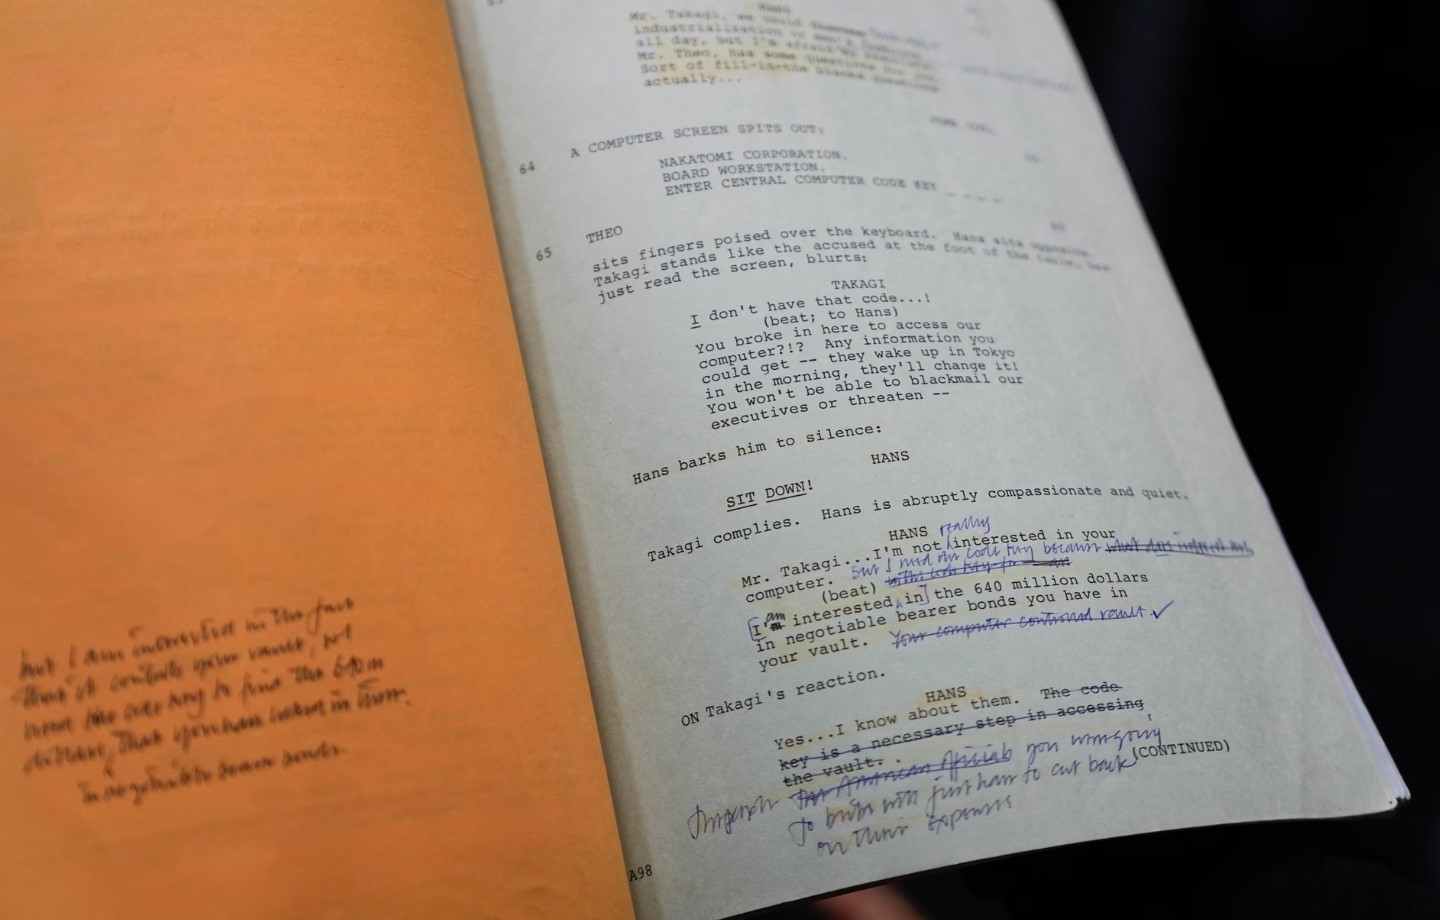 but I am interested in the fact
that it controls your vault,
need the code key to find the 640 m
dollars, that you have locked in
in negotiable bearer bonds.
HANS
Mr. Takagi, we could discuss
industrialization or men's fashions
all day, but I'm afraid
Mr. Theo, has some questions for you.
Sort of fill-in-the blanks questions
actually...
64 A COMPUTER SCREEN SPITS OUT:
NAKATOMI CORPORATION.
BOARD WORKSTATION.
ENTER CENTRAL COMPUTER CODE KEY _ _ _ _
65 THEO
sits fingers poised over the keyboard. Hans sits opposite.
Takagi stands like the accused at the foot of the table, has
just read the screen, blurts:
TAKAGI
I don't have that code...!
(beat; to Hans)
You broke in here to access our
computer?!? Any information you
could get -- they wake up in Tokyo
in the morning, they'll change it!
You won't be able to blackmail our
executives or threaten --
Hans barks him to silence:
HANS
SIT DOWN!
Takagi complies. Hans is abruptly compassionate and quiet.
HANS really
Mr. Takagi...I'm not interested in your
computer. But I need the code key because
(beat)
am
I'm interested in the 640 million dollars
in negotiable bearer bonds you have in
your vault. Your computer controlled vault.
ON Takagi's reaction.
HANS
Yes...I know about them. The code
key is a necessary step in accessing
the vault.
(CONTINUED)
The American officials you were going
to bribe will just have to cut back
on their expenses
A98